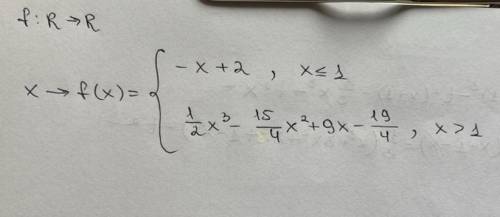 f: R → R
x → f(x) = { -x + 2 , x ≤ 1
1/2 x³ - 15/4 x² + 9x - 19/4 , x > 1